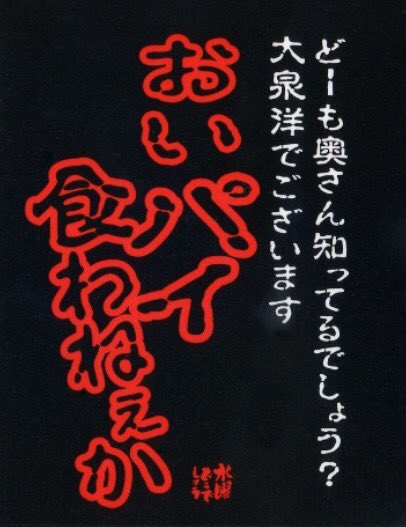 どーも奥さん知ってるでしょう?
大泉洋でございます
おいパイ
食わねぇか
水曜
どうで
しょう